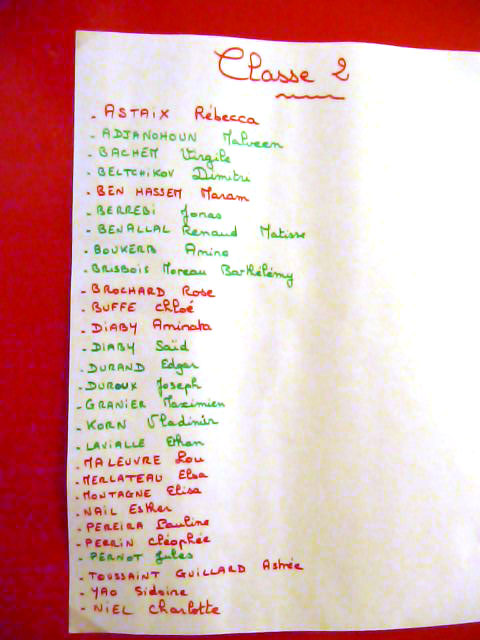 Classe 2
- ASTAIX Rébecca
- ADJANOHOUN Malveen
- BACHEM Virgile
- BELTCHIKOV Dimitri
- BEN HASSEM Maram
- BERREBI Jonas
- BENALLAL Renaud Matisse
- BOUKERB Amine
- BRISBOIS Moreau Barthélémy
- BROCHARD Rose
- BUFFE Chloé
- DIABY Aminata
- DIABY Saïd
- DURAND Edgar
- DUROUX Joseph
- GRANIER Maximien
- KORN Vladimir
- LAVIALLE Ethan
- MALEUVRE Lou
- MERLATEAU Elsa
- MONTAGNE Elisa
- NAIL Esther
- PEREIRA Pauline
- PERRIN Cléophée
- PERNOT Jules
- TOUSSAINT GUILLARD Astrée
- YAO Sidoine
- NIEL Charlotte